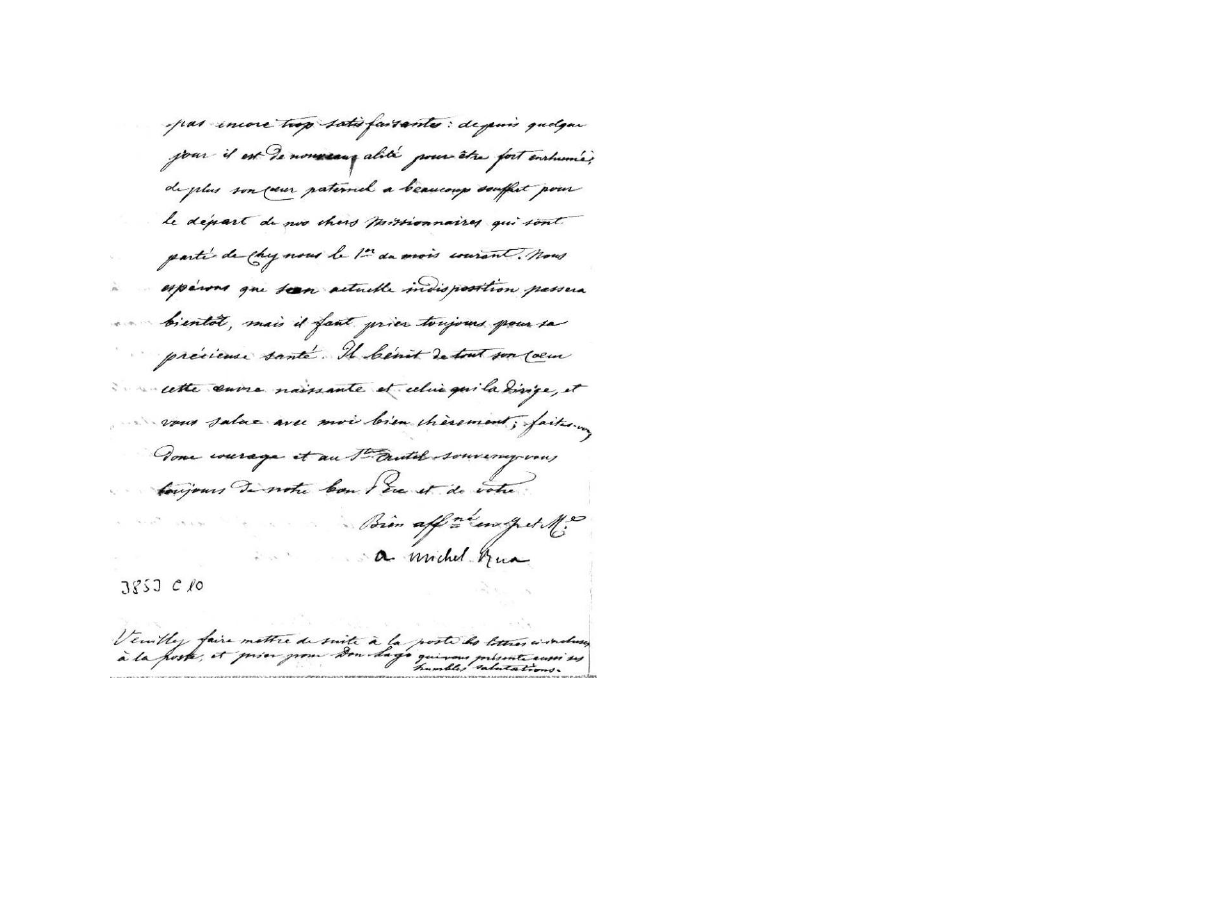 pas encore trop satisfaisantes : depuis quelque
jour il est de nouveau alité pour être fort enrhumé;
de plus son cœur paternel a beaucoup souffert pour
le départ de nos chers Missionnaires qui sont
parté de Chy nous le 1er du mois courant. Nous
espérons que son actuelle indisposition passera
bientôt, mais il faut prier toujours pour sa
précieuse santé. Il bénit de tout son Cœur
cette œuvre naissante et celui qui la dirige, et
vous salue avec moi bien chèrement ; faites-vous
donc courage et au St Autel souvenez-vous
toujours de notre bon Père et de votre
Bien affné en J. et M.e
a Michel Rua
3853 C 10
Veuillez faire mettre de suite à la poste les lettres ci incluses
à la poste, et prier pour Don Lago qui vous présente aussi ses
humbles salutations.